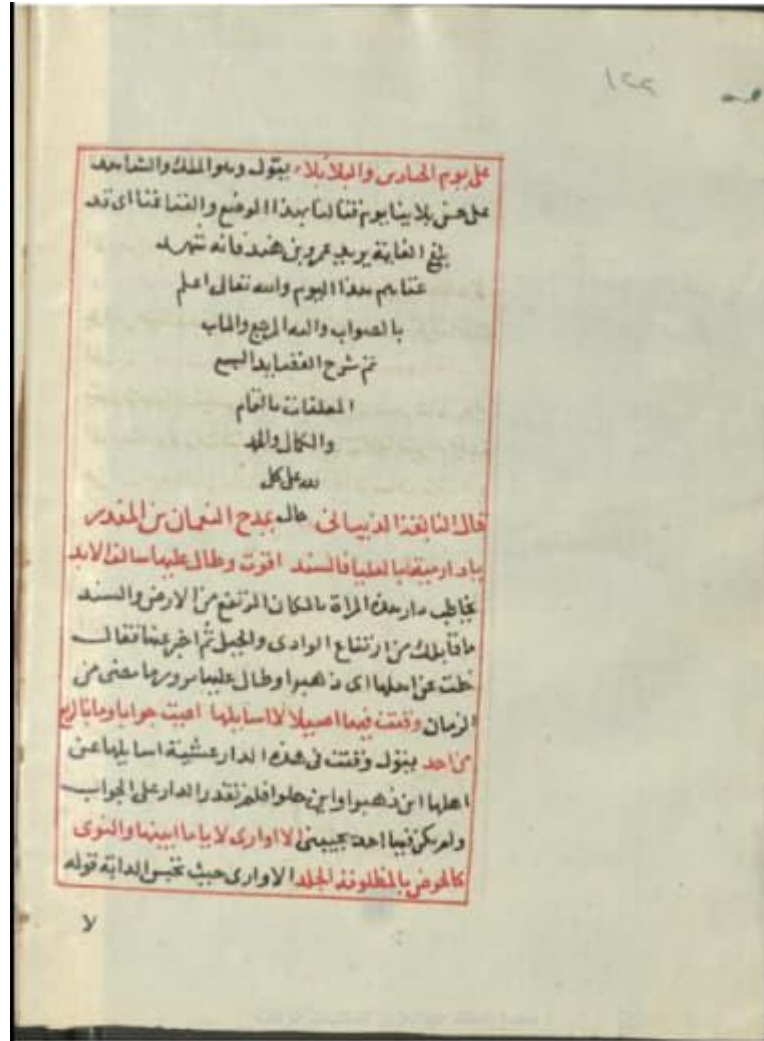 ٢٢١
على يوم الحيارين والبلا بلاء يقول وهو الملك والشاهد
على حسن بلاينا يوم قتالنا بهذا الموضع والقنا قنا اى قد
بلغ الغاية يريد عمرو بن هند فانه شهد
عناهم هذا اليوم والله تعالى اعلم
بالصواب واليه المرجع والماب
تم شرح القصايد السبع
المعلقات بالتمام
والكمال والحمد
لله على كل
قال النابغة الذبيانى حال يمدح النعمان بن المنذر
يا دار مية بالعليا فالسند اقوت وطال عليها سالف الابد
يخاطب دار هذه المراة بالمكان المرتفع من الارض والسند
ما قابلك من ارتفاع الوادى والجبل ثم اخبر عنها فقال
خلت من اهلها اى ذهبوا وطال عليها مرور ما مضى من
الزمان وقفت فيها اصيلا لا اسايلها اعيت جوابا وما بالربع
من احد يقول وقفت فى هذه الدار عشية اسايلها عن
اهلها اين ذهبوا واين حلوا فلم تقدر الدار على الجواب
ولم يكن فيها احد يجيبنى الا اوارى لايا ما ابينها والنوى
كالحوض بالمظلومة الجلد الاوارى حيث تحبس الدابة قوله
لا